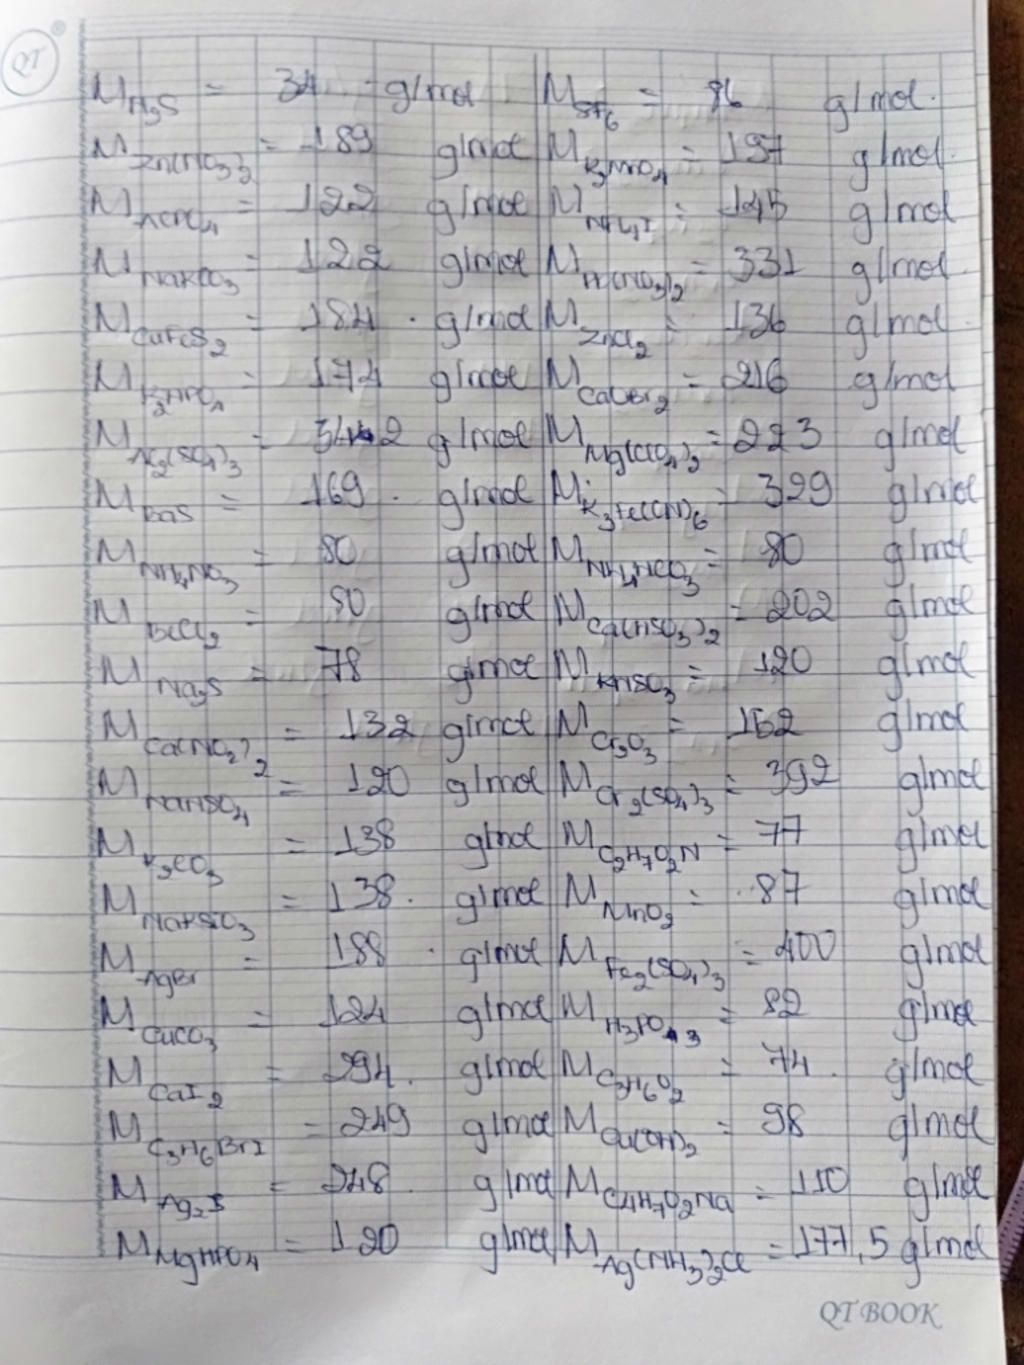 QT
M H2S = 34 g/mol M SF6 = 86 g/mol.
M Zn(NO3)2 = 189 g/mol M K2MnO4 = 197 g/mol.
M AlPO4 = 122 g/mol M NH4I = 145 g/mol
M NaKCO3 = 122 g/mol M Pb(NO3)2 = 331 g/mol.
M CuFeS2 = 184. g/mol M ZnCl2 = 136 g/mol.
M K2HPO4 = 174 g/mol M CaOBr2 = 216 g/mol
M Al2(SO4)3 = 342 g/mol M Mg(ClO4)2 = 223 g/mol
M BaS = 169. g/mol M K3Fe(CN)6 = 329 g/mol
M NH4NO3 = 80 g/mol M NH4HCO3 = 80 g/mol
M BeCl2 = 80 g/mol M Ca(HSO3)2 = 202 g/mol
M Na2S = 78 g/mol M KHSO3 = 120 g/mol
M Ca(NO2)2 = 132 g/mol M Cr2O3 = 152 g/mol
M NaHSO4 = 120 g/mol M Cr2(SO4)3 = 392 g/mol
M K2CO3 = 138 g/mol M C2H7O2N = 77 g/mol
M NaKSiO3 = 138. g/mol M MnO2 = 87 g/mol
M AgBr = 188. g/mol M Fe2(SO4)3 = 400 g/mol
M CuCO3 = 124 g/mol M H3PO3 = 82 g/mol
M CaI2 = 294. g/mol M C3H6O2 = 74. g/mol
M C3H6BrI = 249 g/mol M Cu(OH)2 = 98 g/mol
M Ag2S = 248. g/mol M C4H7O2Na = 110 g/mol
M MgHPO4 = 120 g/mol M Ag(NH3)2Cl = 177,5 g/mol
QT BOOK